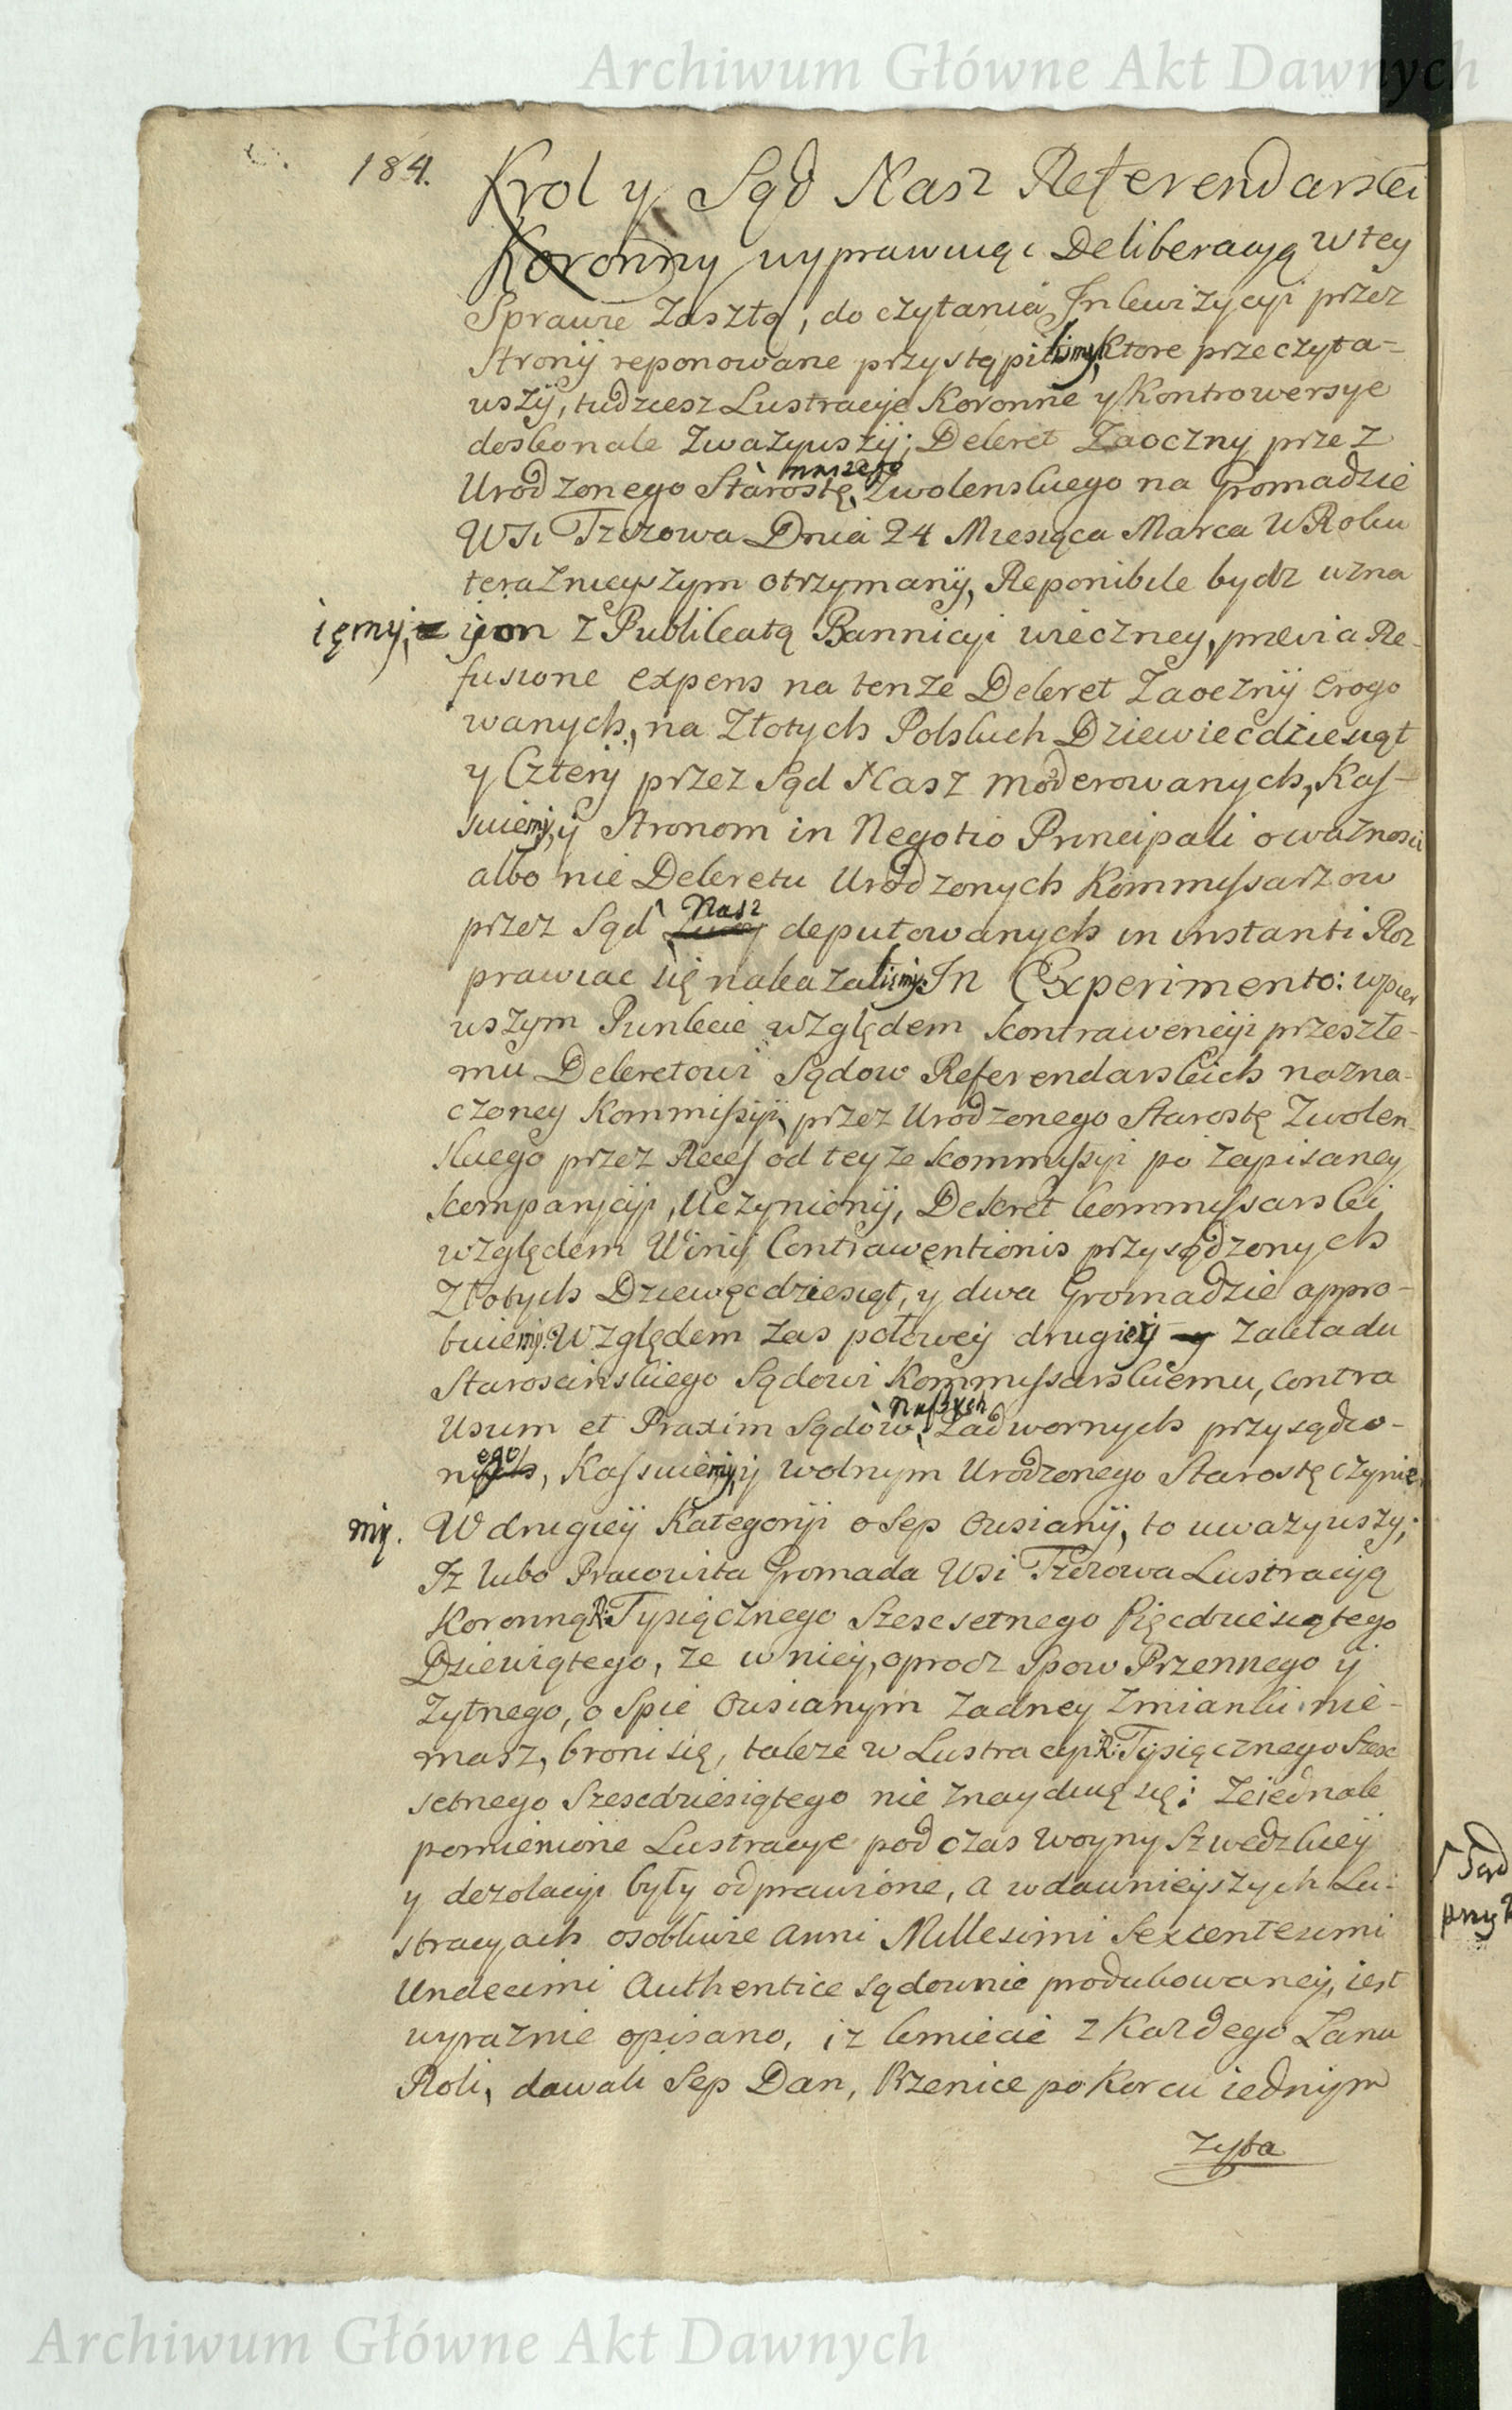 Archiwum Główne Akt Dawnych
184.
Krol y Sąd Nasz Referendarski
Koronny wyprawuiąc Deliberacyą w tey
Sprawie Zaszłą, do czytania Inkwizycyi przez
Strony reponowane przystąpiliśmy, Ktore przeczyta-
wszy, tudziesz Lustracye Koronne y Kontrowersye
doskonale Zwazywszy; Dekret Zaoczny przez
naszego
Urodzonego Starostę Zwolenskiego na Gromadzie
Wsi Tczowa Dnia 24 Miesiąca Marca w Roku
teraznieyszym otrzymany, Reponibile bydz uzna
iemy, y on z Publikatą Bannicyi wieczney, praevia Re-
fusione expens na tenze Dekret Zaoczny erogo
wanych, na Złotych Polskich Dziewiecdziesiąt
y Cztery przez Sąd Nasz moderowanych, Kas-
suiemy, y Stronom in Negotio Principali o waznosci
albo nie Dekretu Urodzonych Kommissarzow
Nasz
przez Sąd deputowanych in instanti Roz
prawiac się nakazaliśmy. In Experimento: w pier
wszym Punkcie względem kontrawencyi przeszłe-
mu Dekretowi Sądow Referendarskich nazna-
czoney Kommissyi, przez Urodzonego Starostę Zwolen
skiego przez Recess od teyze kommissyi po zapisaney
komparycyi, Uczyniony, Dekret kommissarski
względem Winy Contrawentionis przysądzonych
Złotych Dziewęcdziesiąt, y dwa Gromadzie appro-
buiemy. Względem zas połowey drugiey zakładu
Staroscinskiego Sądowi Kommissarskiemu, contra
Naszych
Usum et Praxim Sądow Zadwornych przysądzo-
ego
nych, Kassuiemy, y wolnym Urodzonego Starostę czynie
my. W drugiey Kategoryi o Sep Owsiany, to uwazywszy;
Iz lubo Pracowita Gromada Wsi Tczowa Lustracyą
Koronną R: Tysiącznego Szescsetnego Pięcdziesiątego
Dziewiątego, ze w niey, oprocz Spow Przennego y
Zytnego, o Spie Owsianym zadney zmianki nie-
masz, broni się, takze w Lustracyi R: Tysiącznego Szesc
setnego Szescdziesiątego nie znayduię się; Ze iednak
pomienione Lustracye podczas Woyny Szwedzkiey
y dezolacyi były odprawione, a w dawnieyszych Lu-
stracyach osobliwie Anni Millesimi Sexcentesimi
Undecimi Authentice sądownie produkowaney, iest
wyraznie opisano, iz kmiecie z Kazdego Łanu
Roli, dawali Sep Dan, Przenice po Korcu iednym
zyta
Sąd
przy
Archiwum Główne Akt Dawnych